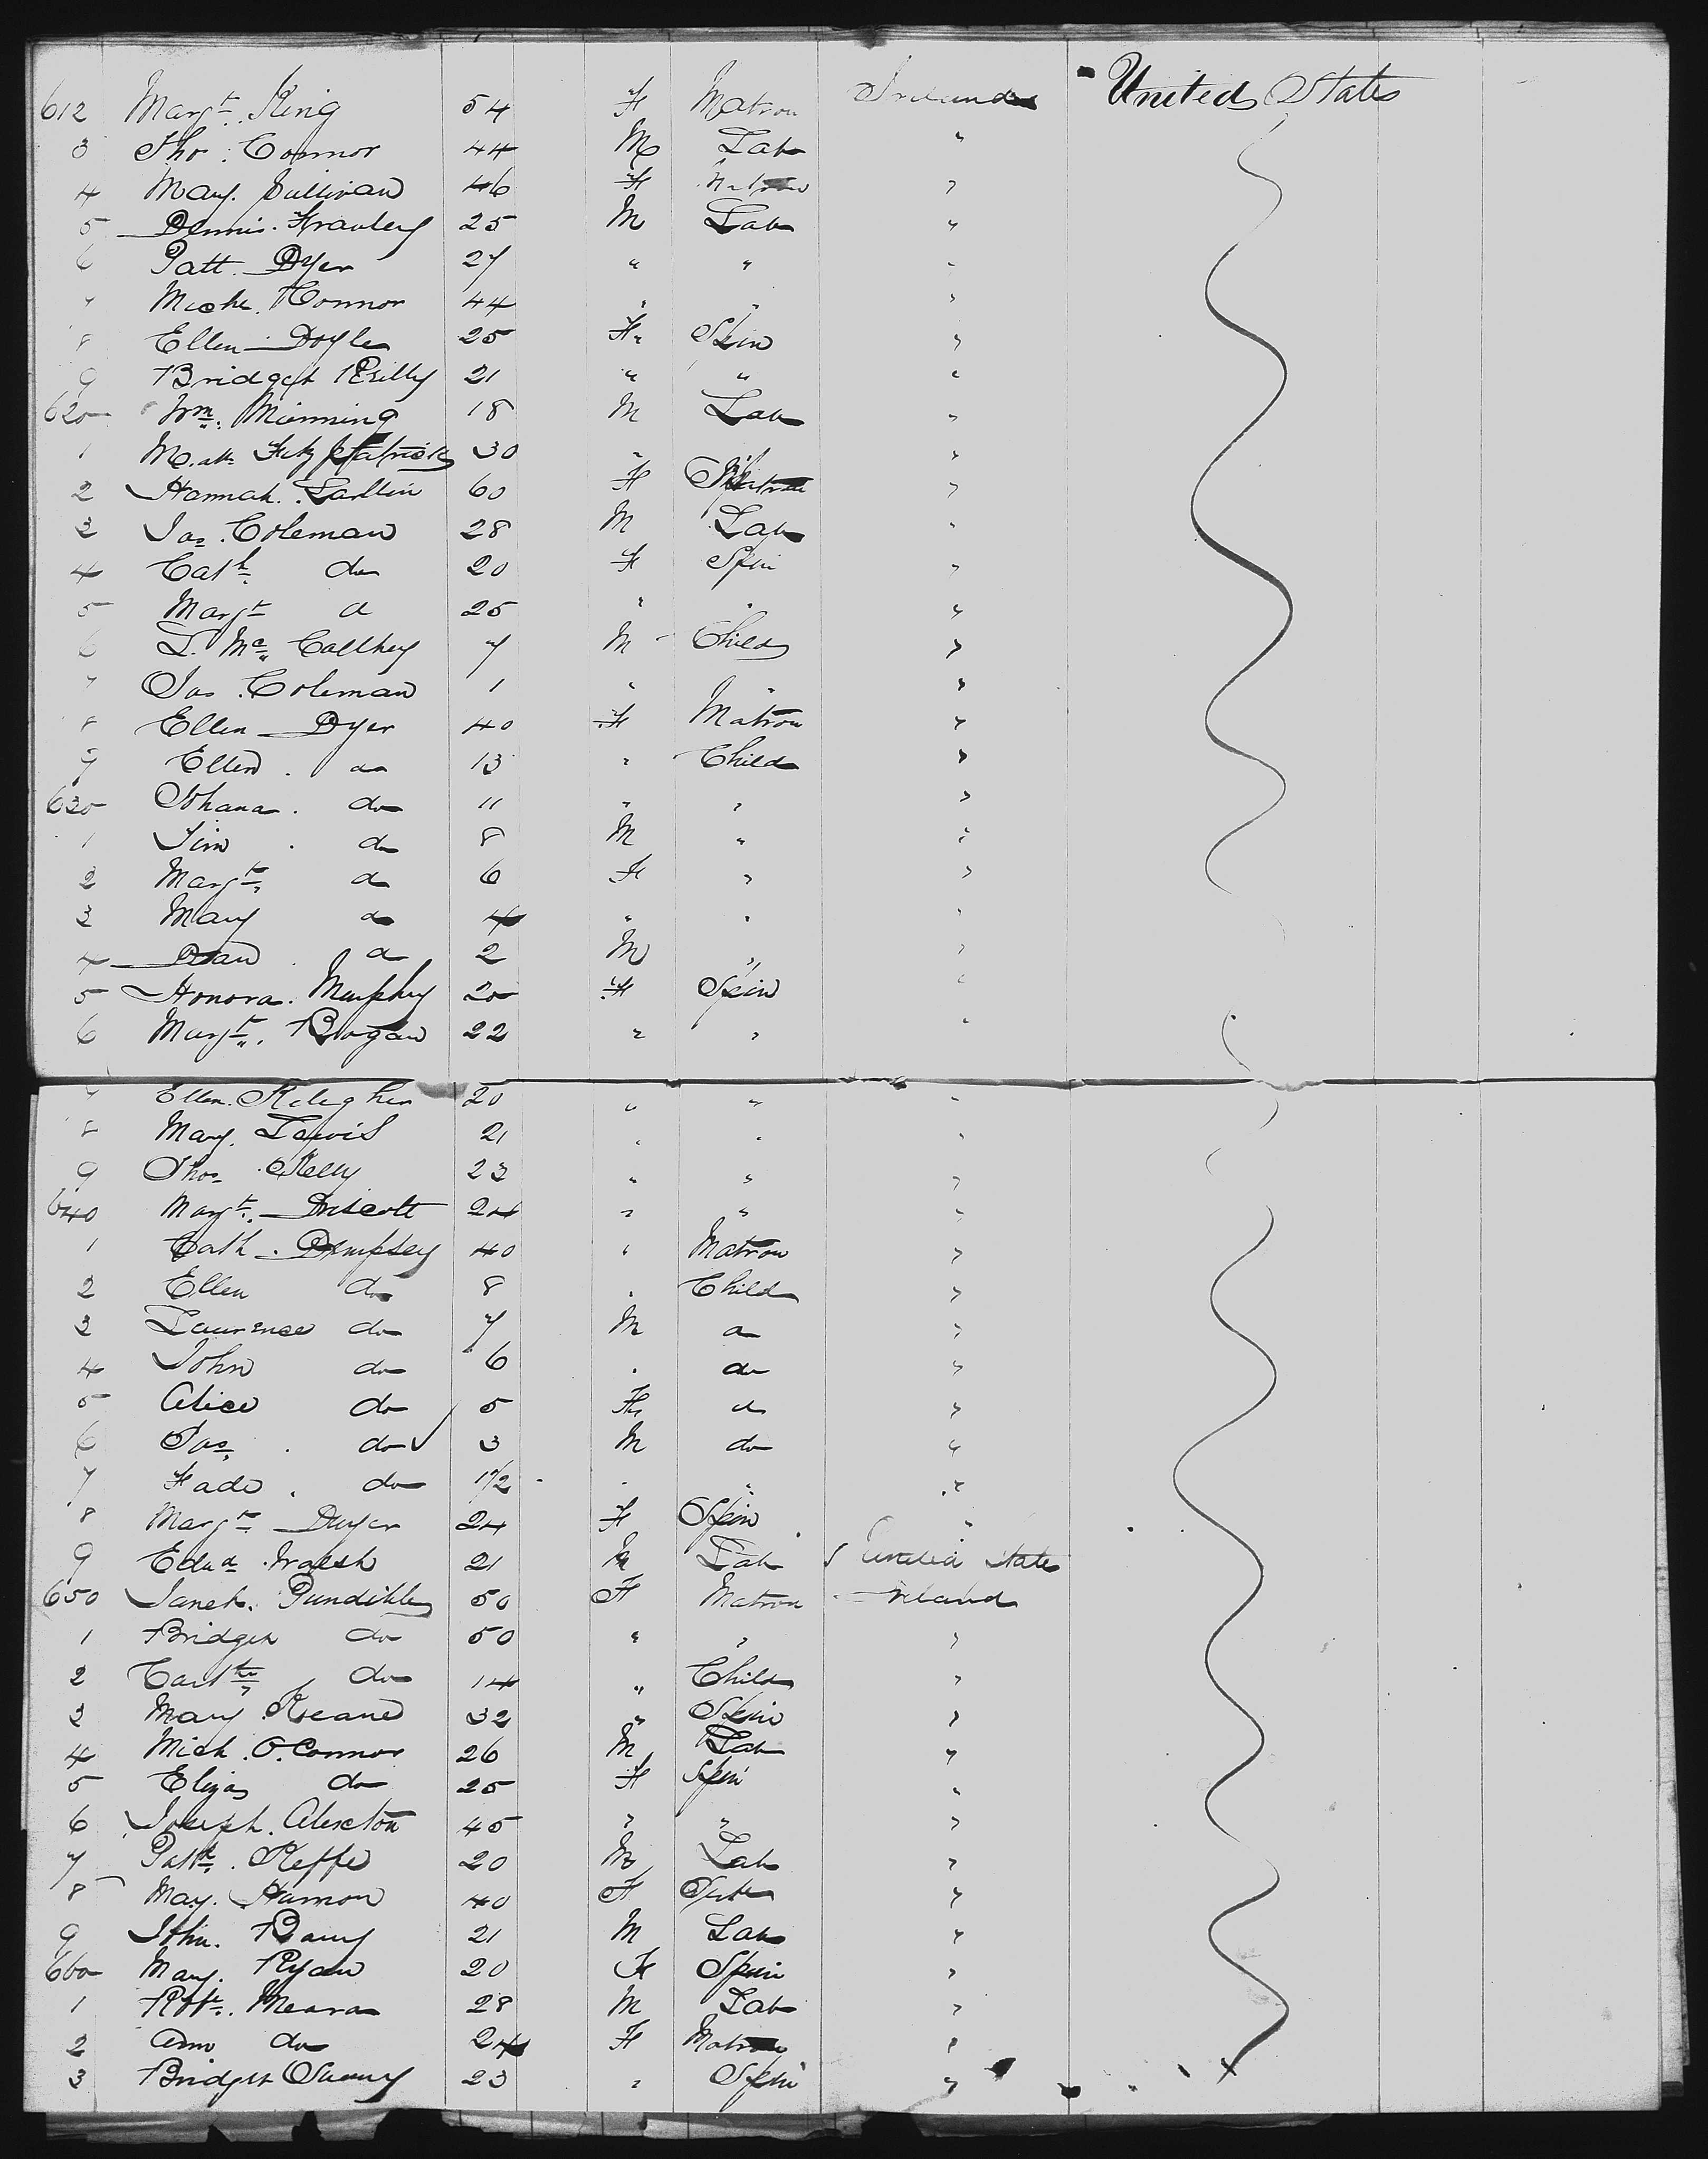 612 Margt. King 54 F Matron Ireland United States
3 Tho. Connor 44 M Lab "
4 Mary Sullivan 46 F Matron "
5 Dennis 25 M Lab "
6 Patt. Dyer 27 " " "
7 Miche. Connor 44 " " "
8 Ellen Doyle 25 F Spin "
9 Bridget Reilly 21 " " "
620 Wm. Manning 18 M Lab "
1 Fitzpatrick 30 " "
2 Hannah 60 F Matron "
3 Jas. Coleman 28 M Lab "
4 Cath do 20 F Spin "
5 Margt do 25 " " "
6 Mc 7 M Child "
7 Jas. Coleman 1 " " "
8 Ellen Dyer 40 F Matron "
9 Ellen do 13 " Child "
630 Johana do 11 " " "
1 Tim do 8 M " "
2 Margt do 6 F " "
3 Mary do 4 " " "
4 do 2 M " "
5 Honora Murphy 20 F Spin "
6 Margt. Brogan 22 " " "
7 Ellen 20 " " "
8 Mary 21 " " "
9 Thos Kelly 23 " " "
640 Margt. Driscoll 24 " " "
1 Cath. Dempsey 40 " Matron "
2 Ellen do 8 " Child "
3 Laurence do 7 M do "
4 John do 6 " do "
5 Alice do 5 F do "
6 Jas. do 3 M do "
7 do 1 1/2 " " "
8 Margt. Dwyer 24 F Spin "
9 Edwd Walsh 21 M Lab United States
650 Janet 50 F Matron Ireland
1 Bridget do 50 " " "
2 Cath do 14 " Child "
3 Mary Keane 32 " Spin "
4 Mich. O.Connor 26 M Lab "
5 Eliza do 25 F Spin "
6 Joseph 45 " " "
7 Patk. Keffe 20 M Lab "
8 May. 40 F "
9 John. Barry 21 M Lab "
660 Mary. Ryan 20 F Spin "
1 Robt. Meara 28 M Lab "
2 Ann do 24 F Matron "
3 Bridget 23 " Spin "